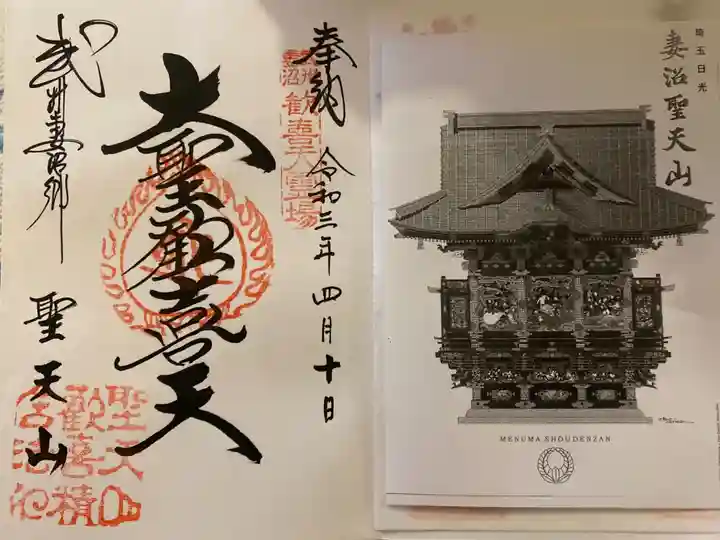 奉納
令和三年四月十日
武州歓喜天霊場
大聖歓喜天
武州妻沼郷
聖天山
聖天山
歓喜精
埼玉日光
妻沼聖天山
MENUMA SHOUDENZAN